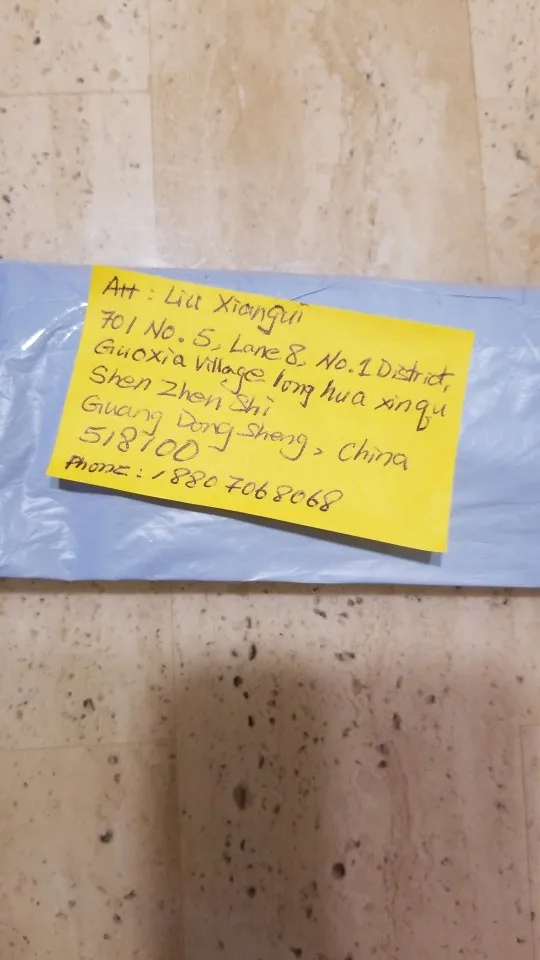 Att: Liu Xiangui
701 No. 5, Lane 8, No. 1 District,
Guoxia Village long hua xin qu
Shen Zhen Shi
Guang Dong Sheng, China
518100
Phone: 18807068068